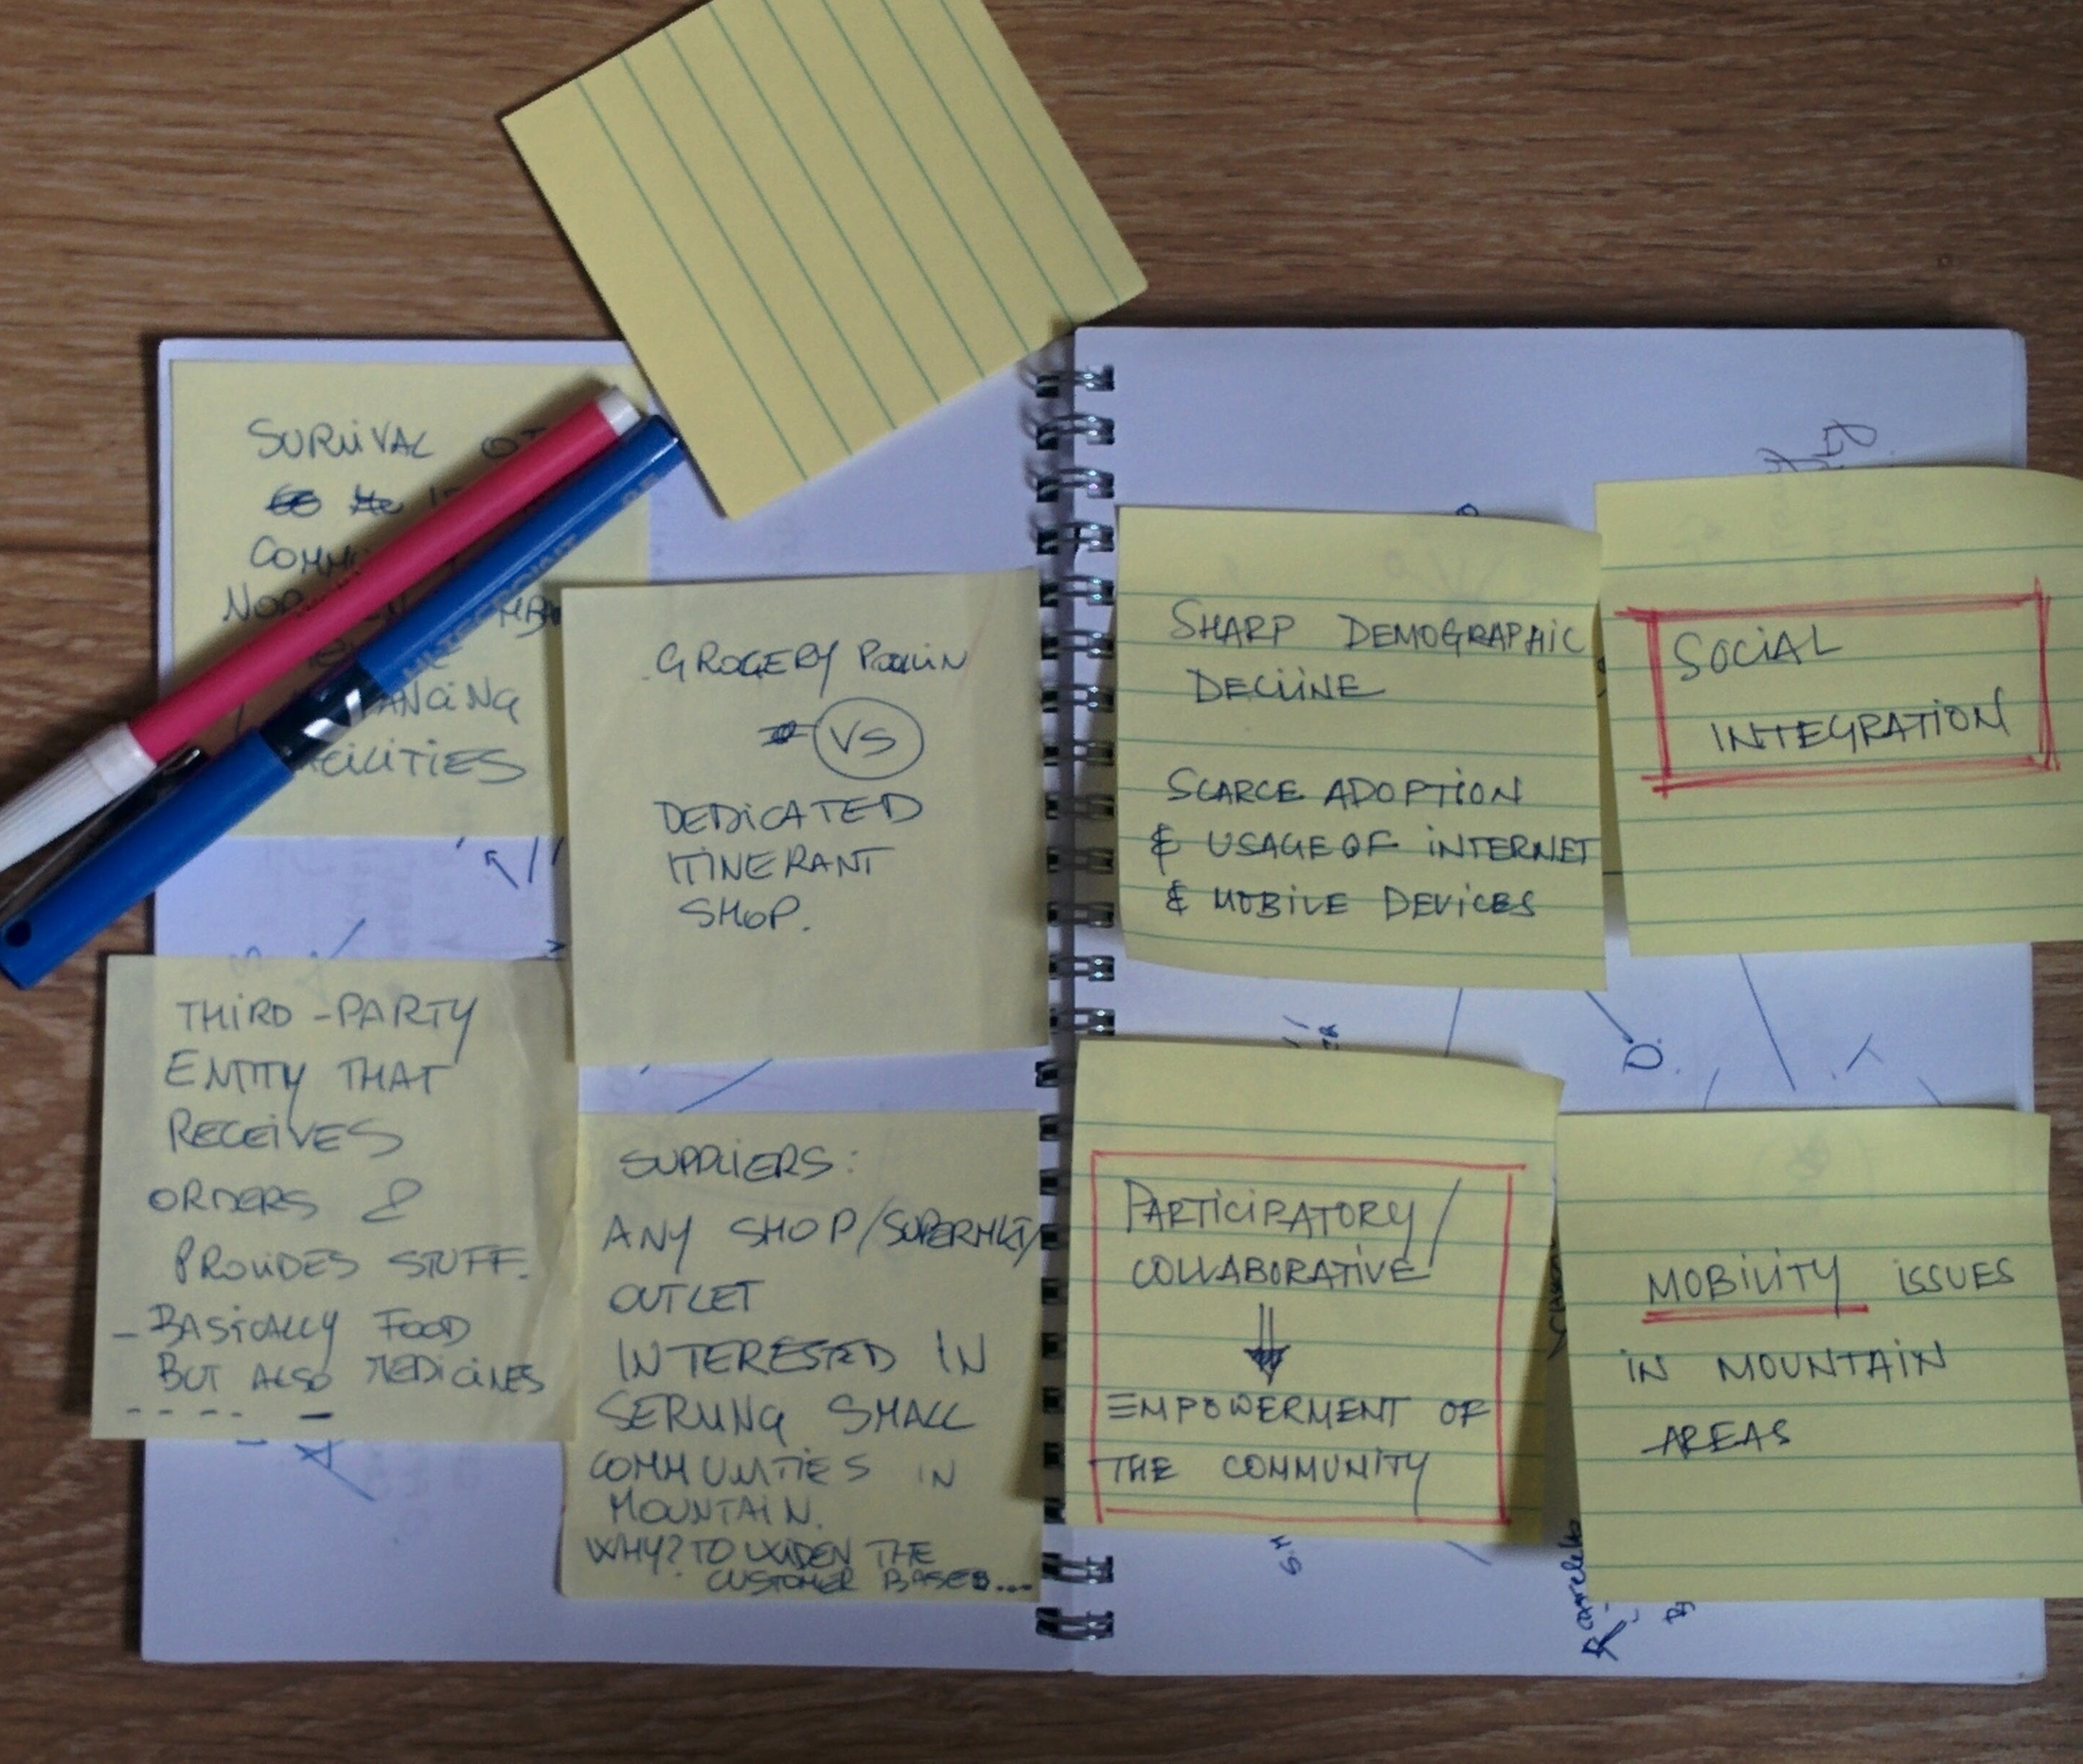 SURVIVAL
ANCING
THIRD-PARTY
ENTITY THAT
RECEIVES
ORDERS &
PROVIDES STUFF.
- BASICALLY FOOD
BUT ALSO MEDICINES
GROCERY
VS
DEDICATED
ITINERANT
SHOP.
SUPPLIERS:
ANY SHOP/SUPERMKT/
OUTLET
INTERESTED IN
SERVING SMALL
COMMUNITIES IN
MOUNTAIN.
WHY? TO WIDEN THE
CUSTOMER BASE...
SHARP DEMOGRAPHIC
DECLINE
SCARCE ADOPTION
& USAGE OF INTERNET
& MOBILE DEVICES
SOCIAL
INTEGRATION
PARTICIPATORY/
COLLABORATIVE
EMPOWERMENT OF
THE COMMUNITY
MOBILITY ISSUES
IN MOUNTAIN
AREAS
D.